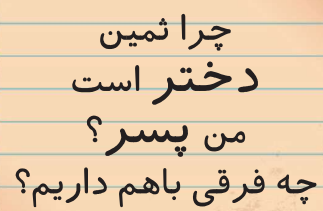 چرا ثمین
دختر است
من پسر؟
چه فرقی باهم داریم؟